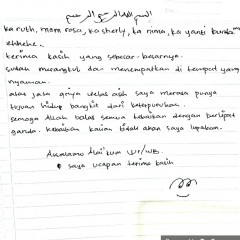 بسم الله الرحمن الرحيم
ka ruth, mom rosa, ka sherly, ka rima, ka yanti
ehhehe.
terima kasih yang sebesar-besarnya.
sudah merangkul dan menempatkan di tempat yang
nyaman.
atas jasa griya welas asih saya merasa punya
tujuan hidup bangkit dari keterpurukan.
semoga Allah balas semua kebaikan dengan berlipat
ganda. kebaikan kalian tidak akan saya lupakan.
Assalamu Alai'kum wr/wb.
• saya ucapan terima kasih